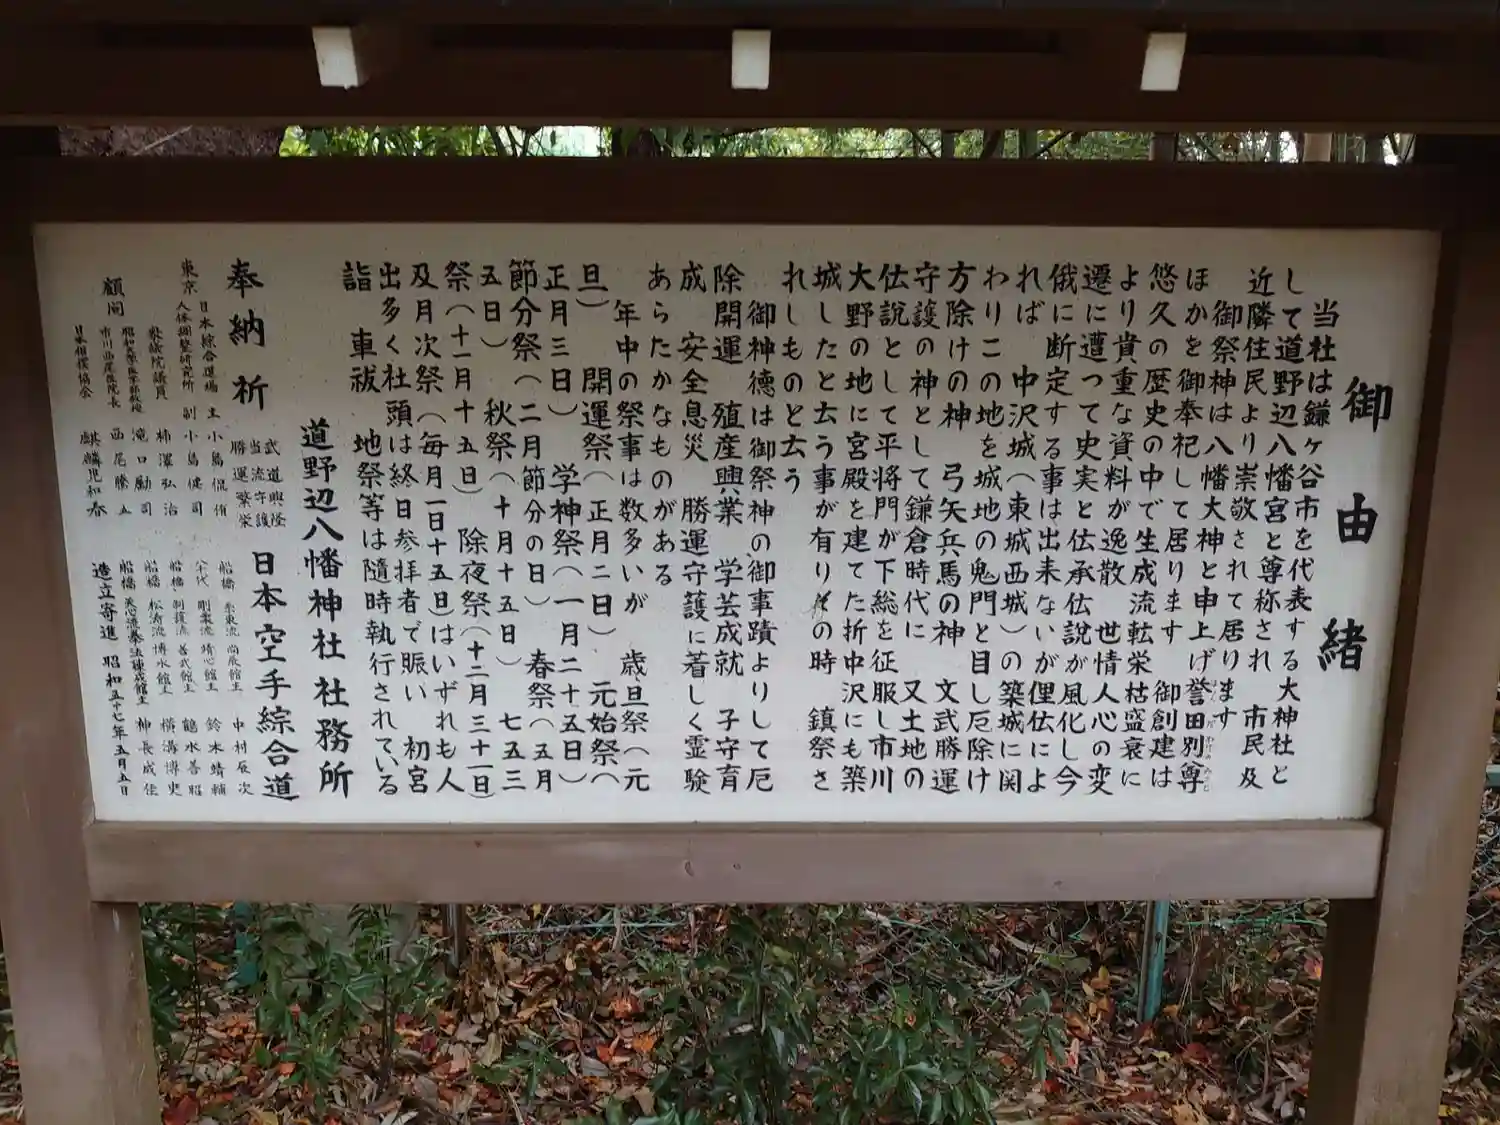 御由緒
当社は鎌ヶ谷市を代表する大神社と
して道野辺八幡宮と尊称され 市民及
近隣住民より崇敬されて居ります
御祭神は八幡大神と申上げ誉田別尊
ほかを御奉祀して居ります 御創建は
悠久の歴史の中で生成流転栄枯盛衰に
より貴重な資料が逸散 世情人心の変
遷に遭って史実と伝承伝説が風化し今
俄に断定する事は出来ないが俚伝によ
れば 中沢城(東城西城)の築城に関
わりこの地を城地の鬼門と目し厄除け
方除けの神 弓矢兵馬の神 文武勝運
守護の神として鎌倉時代に 又土地の
伝説として平将門が下総を征服し市川
大野の地に宮殿を建てた折中沢にも築
城したと云う事が有りその時 鎮祭さ
れしものと云う
御神徳は御祭神の御事蹟よりして厄
除開運 殖産興業 学芸成就 子守育
成 安全息災 勝運守護に著しく霊験
あらたかなものがある
年中の祭事は数多いが 歳旦祭(元
旦) 開運祭(正月二日) 元始祭(
正月三日) 学神祭(一月二十五日)
節分祭(二月節分の日) 春祭(五月
五日) 秋祭(十月十五日) 七五三
祭(十一月十五日) 除夜祭(十二月三十一日)
及月次祭(毎月一日十五日)はいずれも人
出多く社頭は終日参拝者で賑い 初宮
詣 車祓 地祭等は隨時執行されている
道野辺八幡神社社務所
奉納祈
武道興隆
当流守護
勝運繁栄
日本空手綜合道
日本綜合道場 主 小島侃侑
東京 人体調整研究所 副 小島健司
衆議院議員 柿澤弘治
昭和薬科大学教授 滝口勵司
顧問 市川西尾医院長 西尾勝五
日本相撲協会 麒麟児和春
船橋 糸東流 尚辰館主 中村辰次
八千代 剛柔流 靖心館主 鈴木靖輔
船橋 制護流 善武館主 鶴水善昭
船橋 松濤流 博水館主 横溝博史
船橋 養心流拳法練成館主 神長成佳
造立寄進) 昭和五十七年五月五日